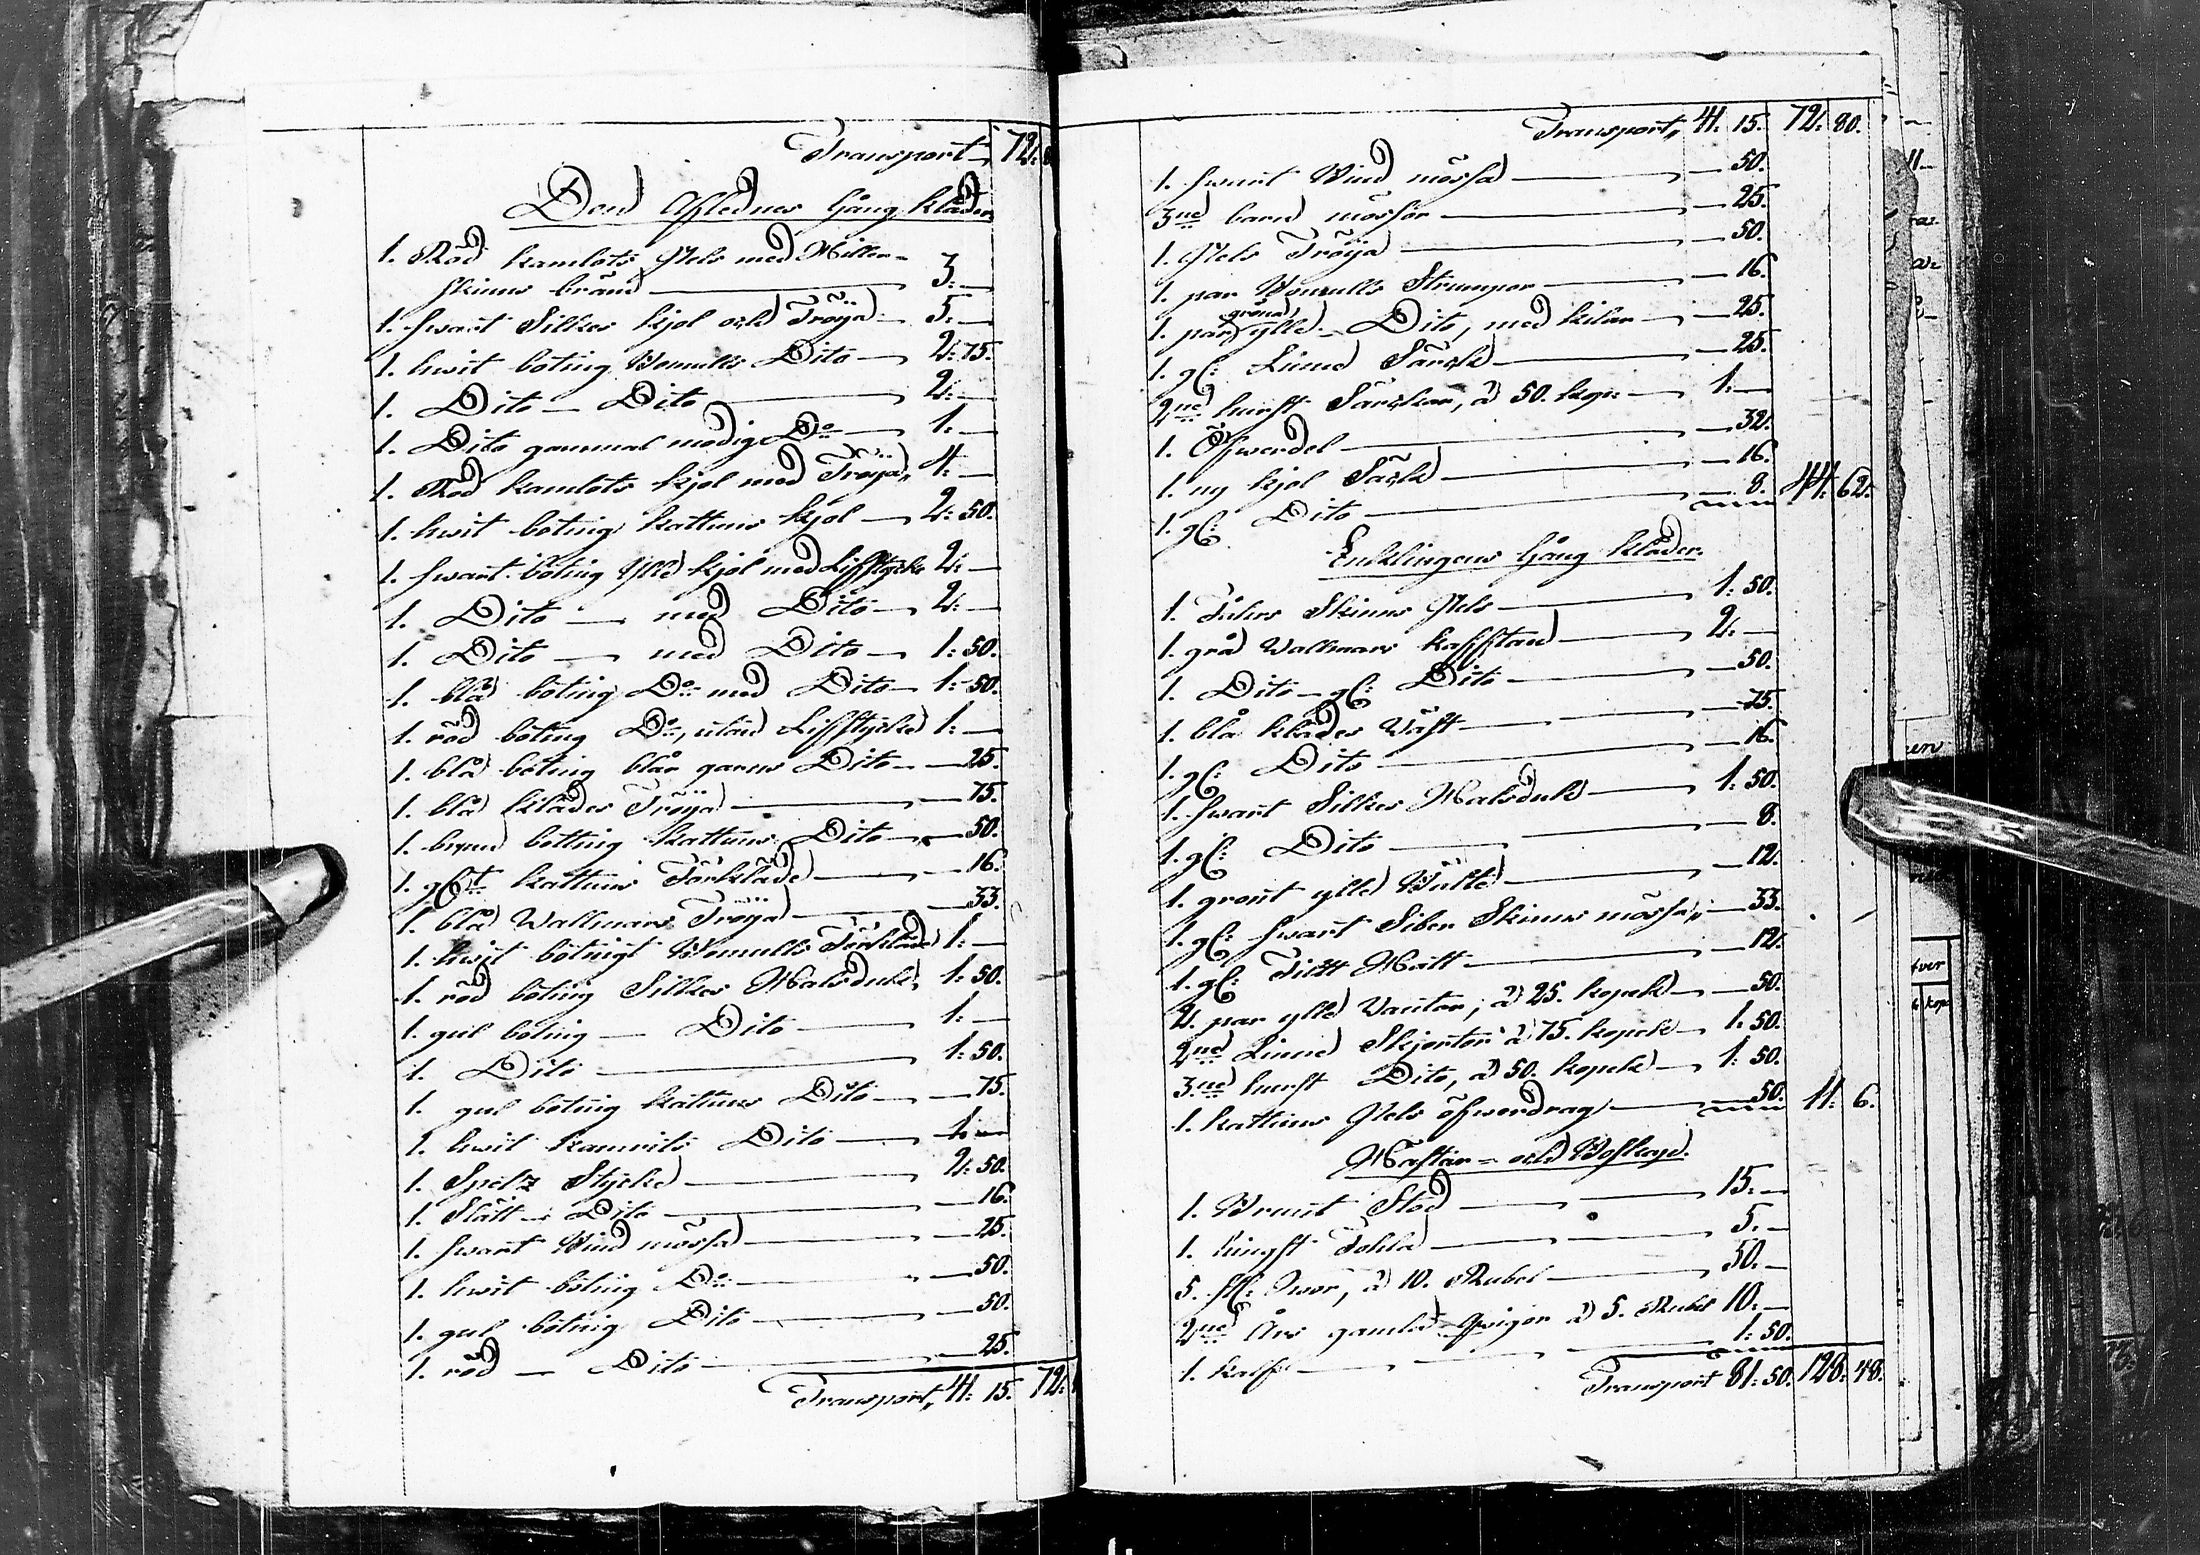 Transport 72:
Den Aflednes Gång kläder
1. Röd kamlots Pels med Miller=
skinns bräm — 3: —
1. swart Silkes kjol och Tröya — 5: —
1. hwit boting Bomulls Dito — 2: 75.
1. Dito — Dito — 2: —
1. Dito gammal modig Do — 1: —
1. Röd kamlots kjol med Tröya, 4: —
1. hwit boting kattuns kjol — 2: 50.
1. swart boting Ylle kjol med Lifstycke 2: —
1. Dito — med Dito — 2: —
1. Dito — med Dito — 1: 50.
1. blå boting Do med Dito — 1: 50.
1. röd boting Do, utan Lifstycke 1: —
1. blå boting blår garns Dito — 25.
1. blå klädes Tröya — 75.
1. brun botting kattuns Dito — 50.
1. glt kattuns Förkläde — 16.
1. blå Wallmars Tröya — 33.
1. hwit botnigt Bomulls Förkläde 1: —
1. röd boting Silkes Halsduk, 1: 50.
1. gul boting — Dito — 1: —
1. Dito — 1: 50.
1. gul boting kattuns Dito — 75.
1. hwit Dito — 1: —
1. Spetz Stycke — 2: 50.
1. Slätt — Dito — 16.
1. swart Bind mössa — 25.
1. hwit boting Do — 50.
1. gul boting Dito — 50.
1. röd — Dito — 25.
Transport, 41: 15. 72:
Transport, 41: 15. 72: 80.
1. swart Bind mössa — 50.
3ne barn mössor — 25.
1. Pels Tröya — 50.
1. par Bomulls Strumpor — 16.
1. par gröna ylle — Dito, med kilar — 25.
1. gl: Linne Särck — 25.
2ne hurst Särckar, à 50. kop: — 1: —
1. Öfwerdel — 32.
1. ny kjol Särck — 16.
1. gl: Dito — 8. 44: 62.
Enklingens Gång kläder.
1. Fåhrs Skinns Pels — 1: 50.
1. grå Wallmars kafftan — 2: —
1. Dito — gl: Dito — 50.
1. blå klädes Wäst — 75.
1. gl: Dito — 16.
1. swart Silkes Halsduk — 1: 50.
1. gl: Dito — 8.
1. grönt ylle Bälte — 12.
1. gl: swart Siber Skinns mössa, — 33.
1. gl: Filtt Hatt — 12.
2. par ylle Wantar, à 25. kopek — 50.
2ne Linne Skjortor à 75. kopek — 1. 50.
3ne hurst Dito, à 50. kopek — 1: 50.
1. kattuns Pels öfwerdrag — 50. 11: 6.
Hästar = och Boskap.
1. Brunt Stod — 15: —
1. hingst Fohla — 5. —
5. st: kor, à 10. Rubel — 50. —
2ne års gamla Qwigor à 5. Rubel 10. —
1. kalf — 1: 50.
Transport 81: 50. 128: 48.